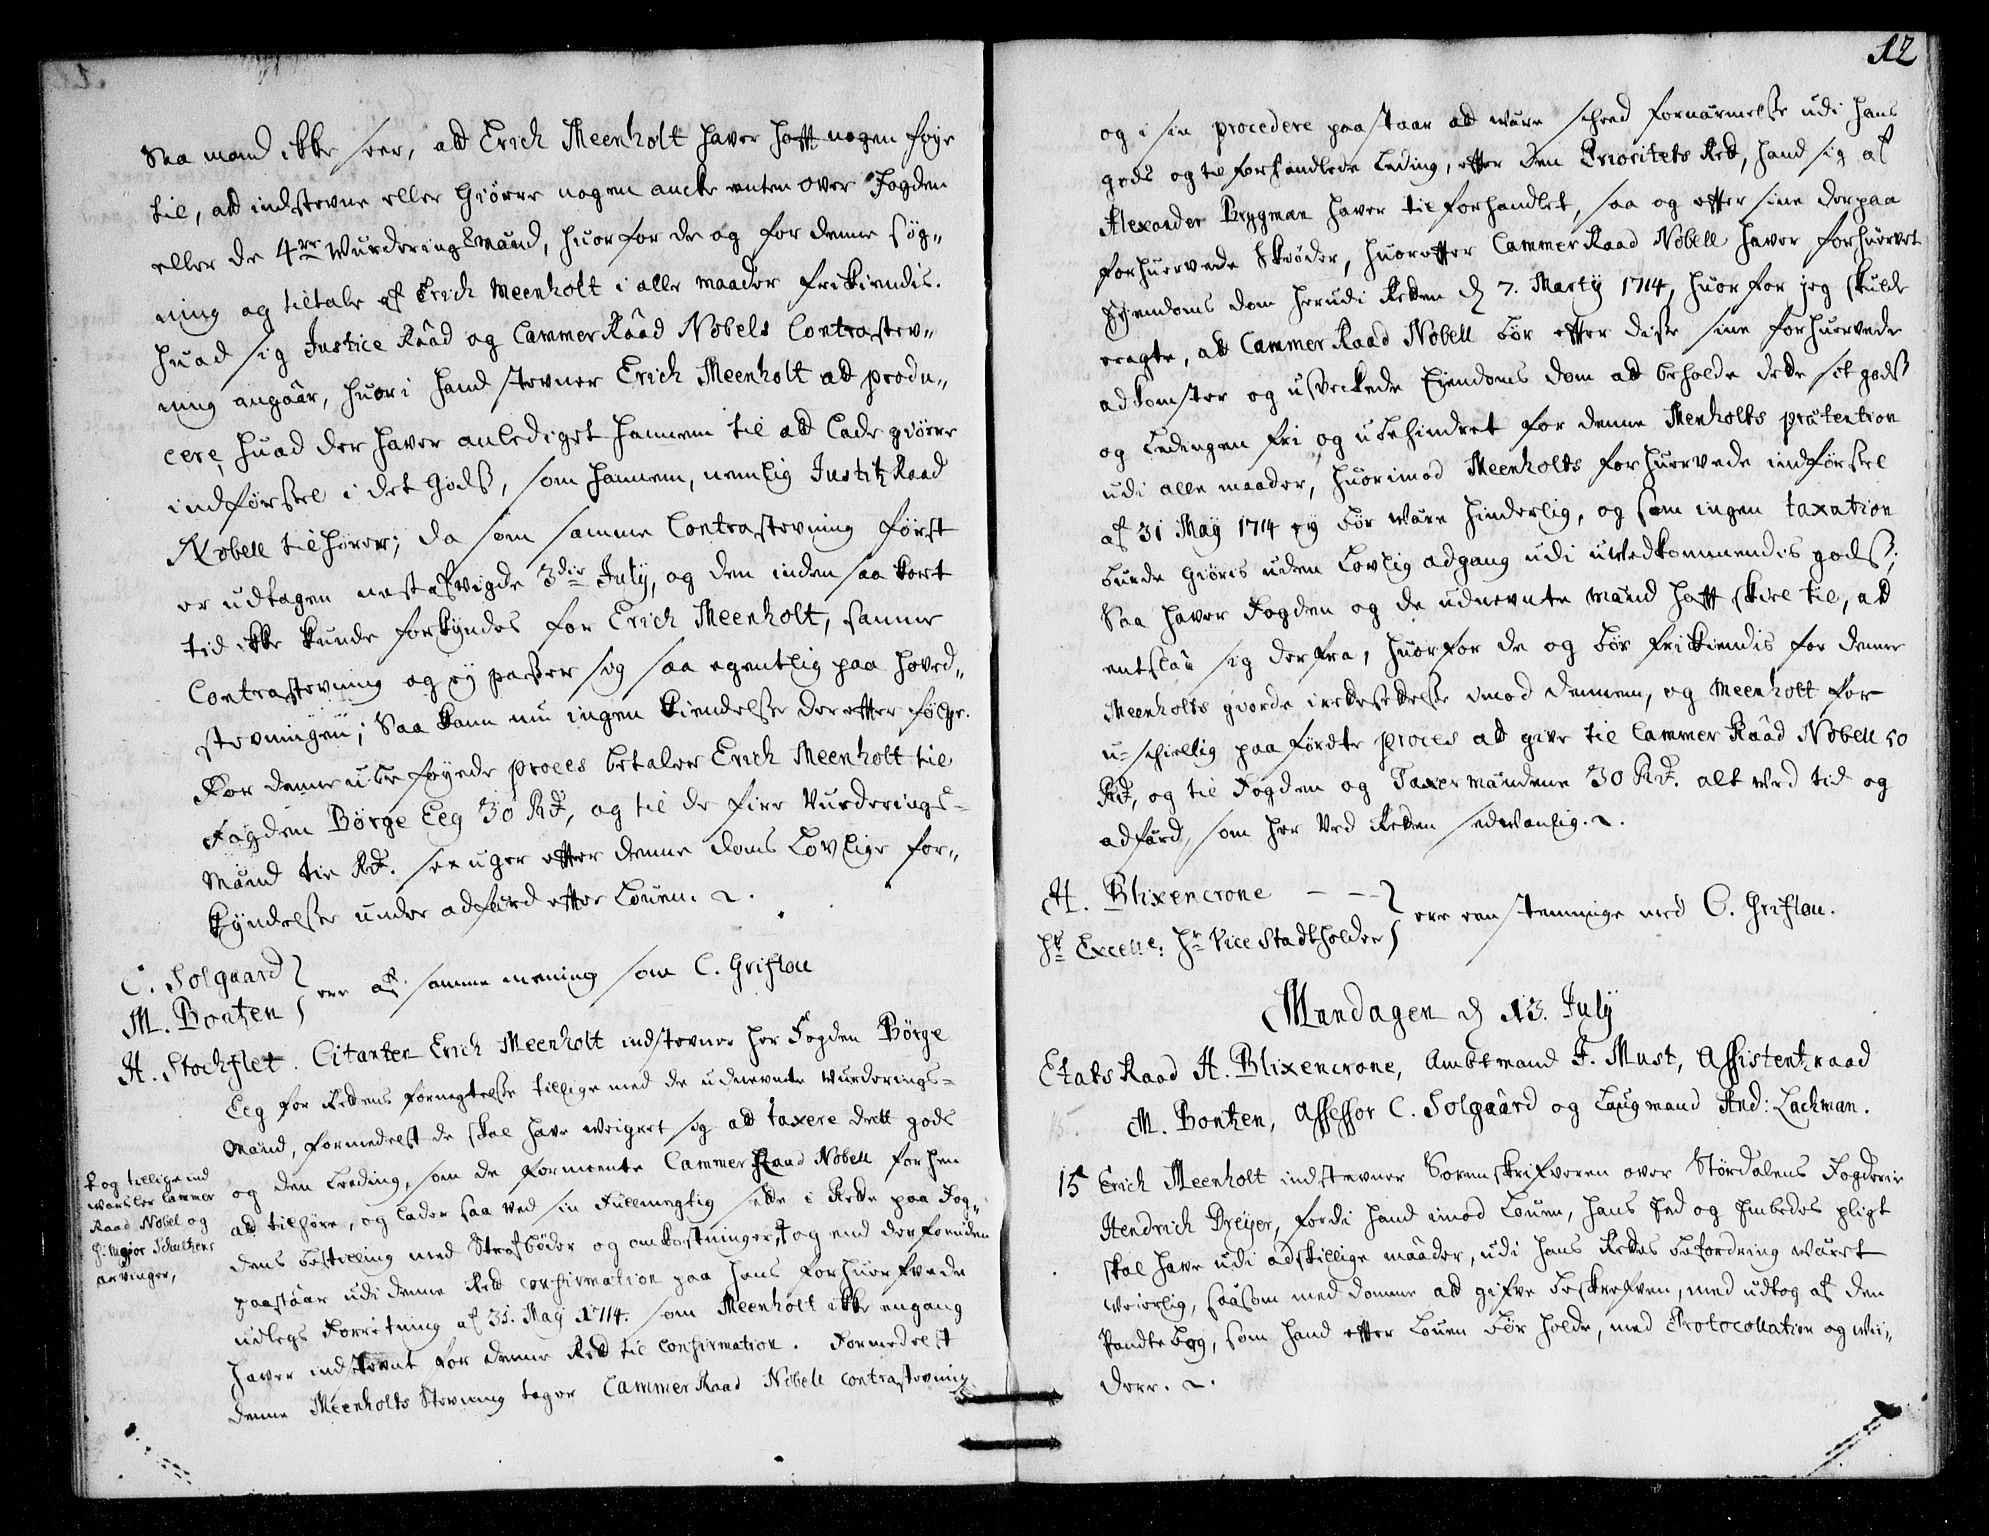 Saa mand ikke seer, att Erich Meenholt haver hafft nogen føye
til, att indstevne eller giøre nogen ancke enten over Fogden
eller de 4re Wurderings Mænd, huorfor de og for denne søg„
ning og tiltale af Erich Meenholt i alle maader frikiendis.
Huad sig Justice Raad og Cammer Raad Nobels Contrastev„
ning angaar, huori hand stevner Erich Meenholt att produ„
cere, huad der haver anlediget hannem til att lade giøre
indførsel i det Gods, som hannem, nemlig Justitz Raad
Nobell tilhører; da som samme Contrastevning først
er udtagen nestafvigte 3die July, og den inden saa kort
tid ikke kunde forkyndes for Erich Meenholt, samme
Contrastevning og ey passer sig saa egentlig paa hoved„
stevningen; Saa kann nu ingen kiendelse derefter følge.
For denne ubeføyede proces betaler Erich Meenholt til
Fogden Børge Eeg 30 Rd, og til de fire Vurderings-
Mænd tie Rd. sex uger efter denne doms Lovlige for„
kyndelse under adfærd efter Loven.
C. Solgaard
M. Bontzen } ere af samme mening som C. Griflou
H. Stockflet. Citanten Erich Meenholt indstevner her Fogden Børge
Eeg for Rettens fornegtelse tillige med de udnevnte Wurderings-
Mænd, formedelst de skal have weigert sig att taxere dett gods
og den Leeding, som de formeente Cammer Raad Nobell forhen
att tilhøre, og lader saa ved sin Fuldmegtig sætte i Rette paa Fog„
dens bestilling med Strafbøder og omkostninger, † og end der foruden
paastaar udi denne Rett confirmation paa hans forhuerfvede
udlegs Forretning af 31. May 1714. som Meenholt ikke engang
haver indstevnt for denne Rett til confirmation. Formedelst
denne Meenholts Stevning tager Cammer Raad Nobell contrastevning
† og tillige ind
warsler Cammer
Raad Nobel og
Hr: Major Schultzens
arvinger,
12
og i sin procedere paastaar att være scheed fornærmelse udi hans
gods og tilforhandlede Leding, efter den Prioritets Rett, hand sig af
Alexander Brygman haver tilforhandlet, saa og efter sine derpaa
forhuervede Skiøder, huorefter Cammer Raad Nobell haver forhuervet
Eyendoms dom herudi Retten d 7. Marty 1714, huorfor jeg skulde
eragte, att Cammer Raad Nobell bør efter disse sine forhuervede
adkomster og usveckede Eyendoms dom att beholde dette sit gods
og Ledingen fri og ubehindret for denne Menholts prætention
udi alle maader, huorimod Meenholts forhuervede indførsel
af 31 May 1714 ey bør være hinderlig, og som ingen taxation
burde giøris uden Lovlig adgang udi uvedkommendis gods;
Saa haver Fogden og de udnevnte Mænd hafft skiel til, att
entslaa sig derfra, huorfor de og bør frikiendis for denne
Meenholts giorde irettesettelse imod dennem, og Meenholt for
u-schiellig paaførdte proces att give til Cammer Raad Nobell 50
Rd, og til Fogden og Taxer mændene 30 Rd. alt ved tid og
adfærd, som her ved Retten sedvanlig.
H. Blixencrone
Hr Excell: Hr Vice Stadtholder } ere eenstemmige med C. Griflou.
Mandagen d 13. July
Etats Raad H. Blixencrone, Ambtmand F. Must, Assistentzraad
M. Bontzen, Assessor C. Solgaard og Laugmand And: Lachman.
15 Erich Meenholt indstevner Sorenskrifveren over Størdalens Fogderie
Hendrich Dreyer, fordi hand imod Loven, hans Eed og Embedes pligt
skal have udi adskillige maader, udi hans Rettes befordring wæret
weierlig, saasom med domme att gifve beskrefven, med udtog af den
Pandtebog, som hand efter Loven bør holde, med Protocollation og wii„
dere.